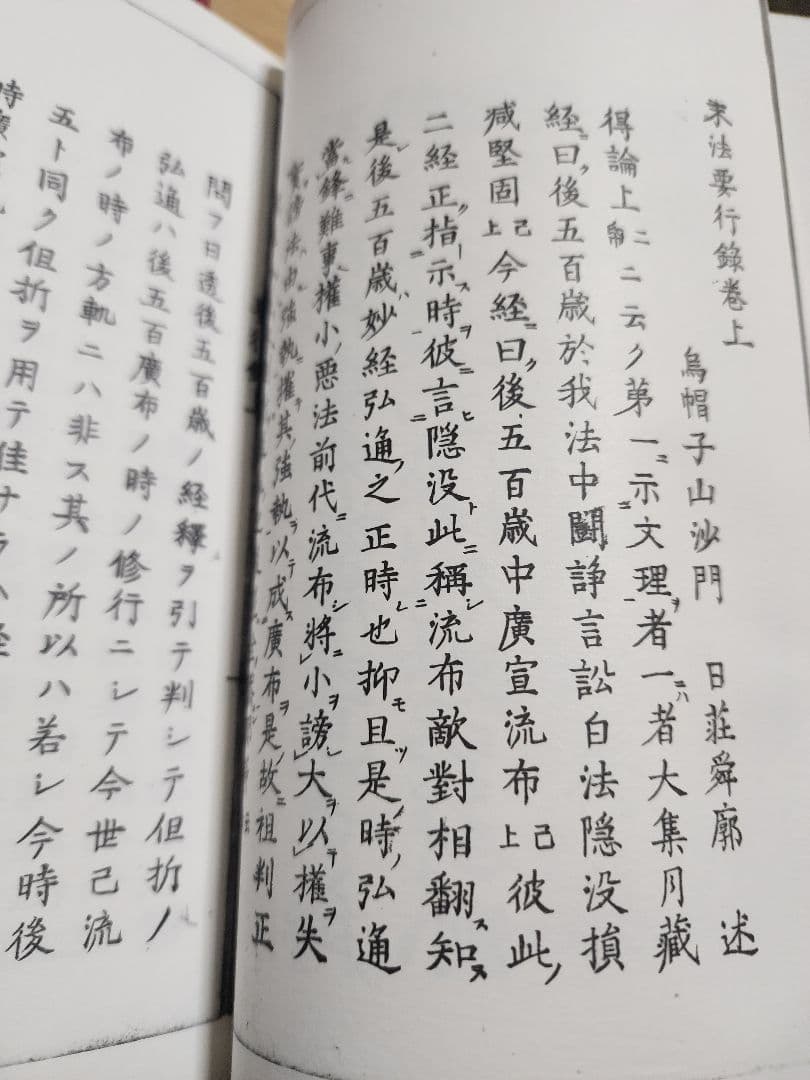 末法要行録巻上
烏帽子山沙門 日荘舜廓 述
得論上 二 二云ク第一ニ示文理ヲ者一ニハ者大集月藏
経ニ曰、後五百歳於我法中闘諍言訟白法隠没損
减堅固 已上 今経ニ曰、後五百歳中廣宣流布 已上 彼此ノ
二経正ク指示ス時ヲ彼ニ言ヒ隠没ト此ニ稱シ流布敵對相翻ス知ス
是レ後五百歳ハ妙経弘通ノ之正時也抑モ且ツ是時ノ弘通
當鋒難事ハ權小ノ惡法前代ニ流布シ將ニ小ヲ謗シ大ヲ以テ權ヲ失
謗法 強執權ヲ其ノ強執ヲ以テ成ス廣布ヲ是ノ故ニ祖判正
問フ曰遠後五百歳ノ経釋ヲ引テ判シテ但折ノ
弘通ハ後五百廣布ノ時ノ修行ニシテ今世已流
布ノ時ノ方軌ニハ非ス其ノ所以ハ若シ今時後
五ト同ク但折ヲ用テ佳ナラハ
時廣